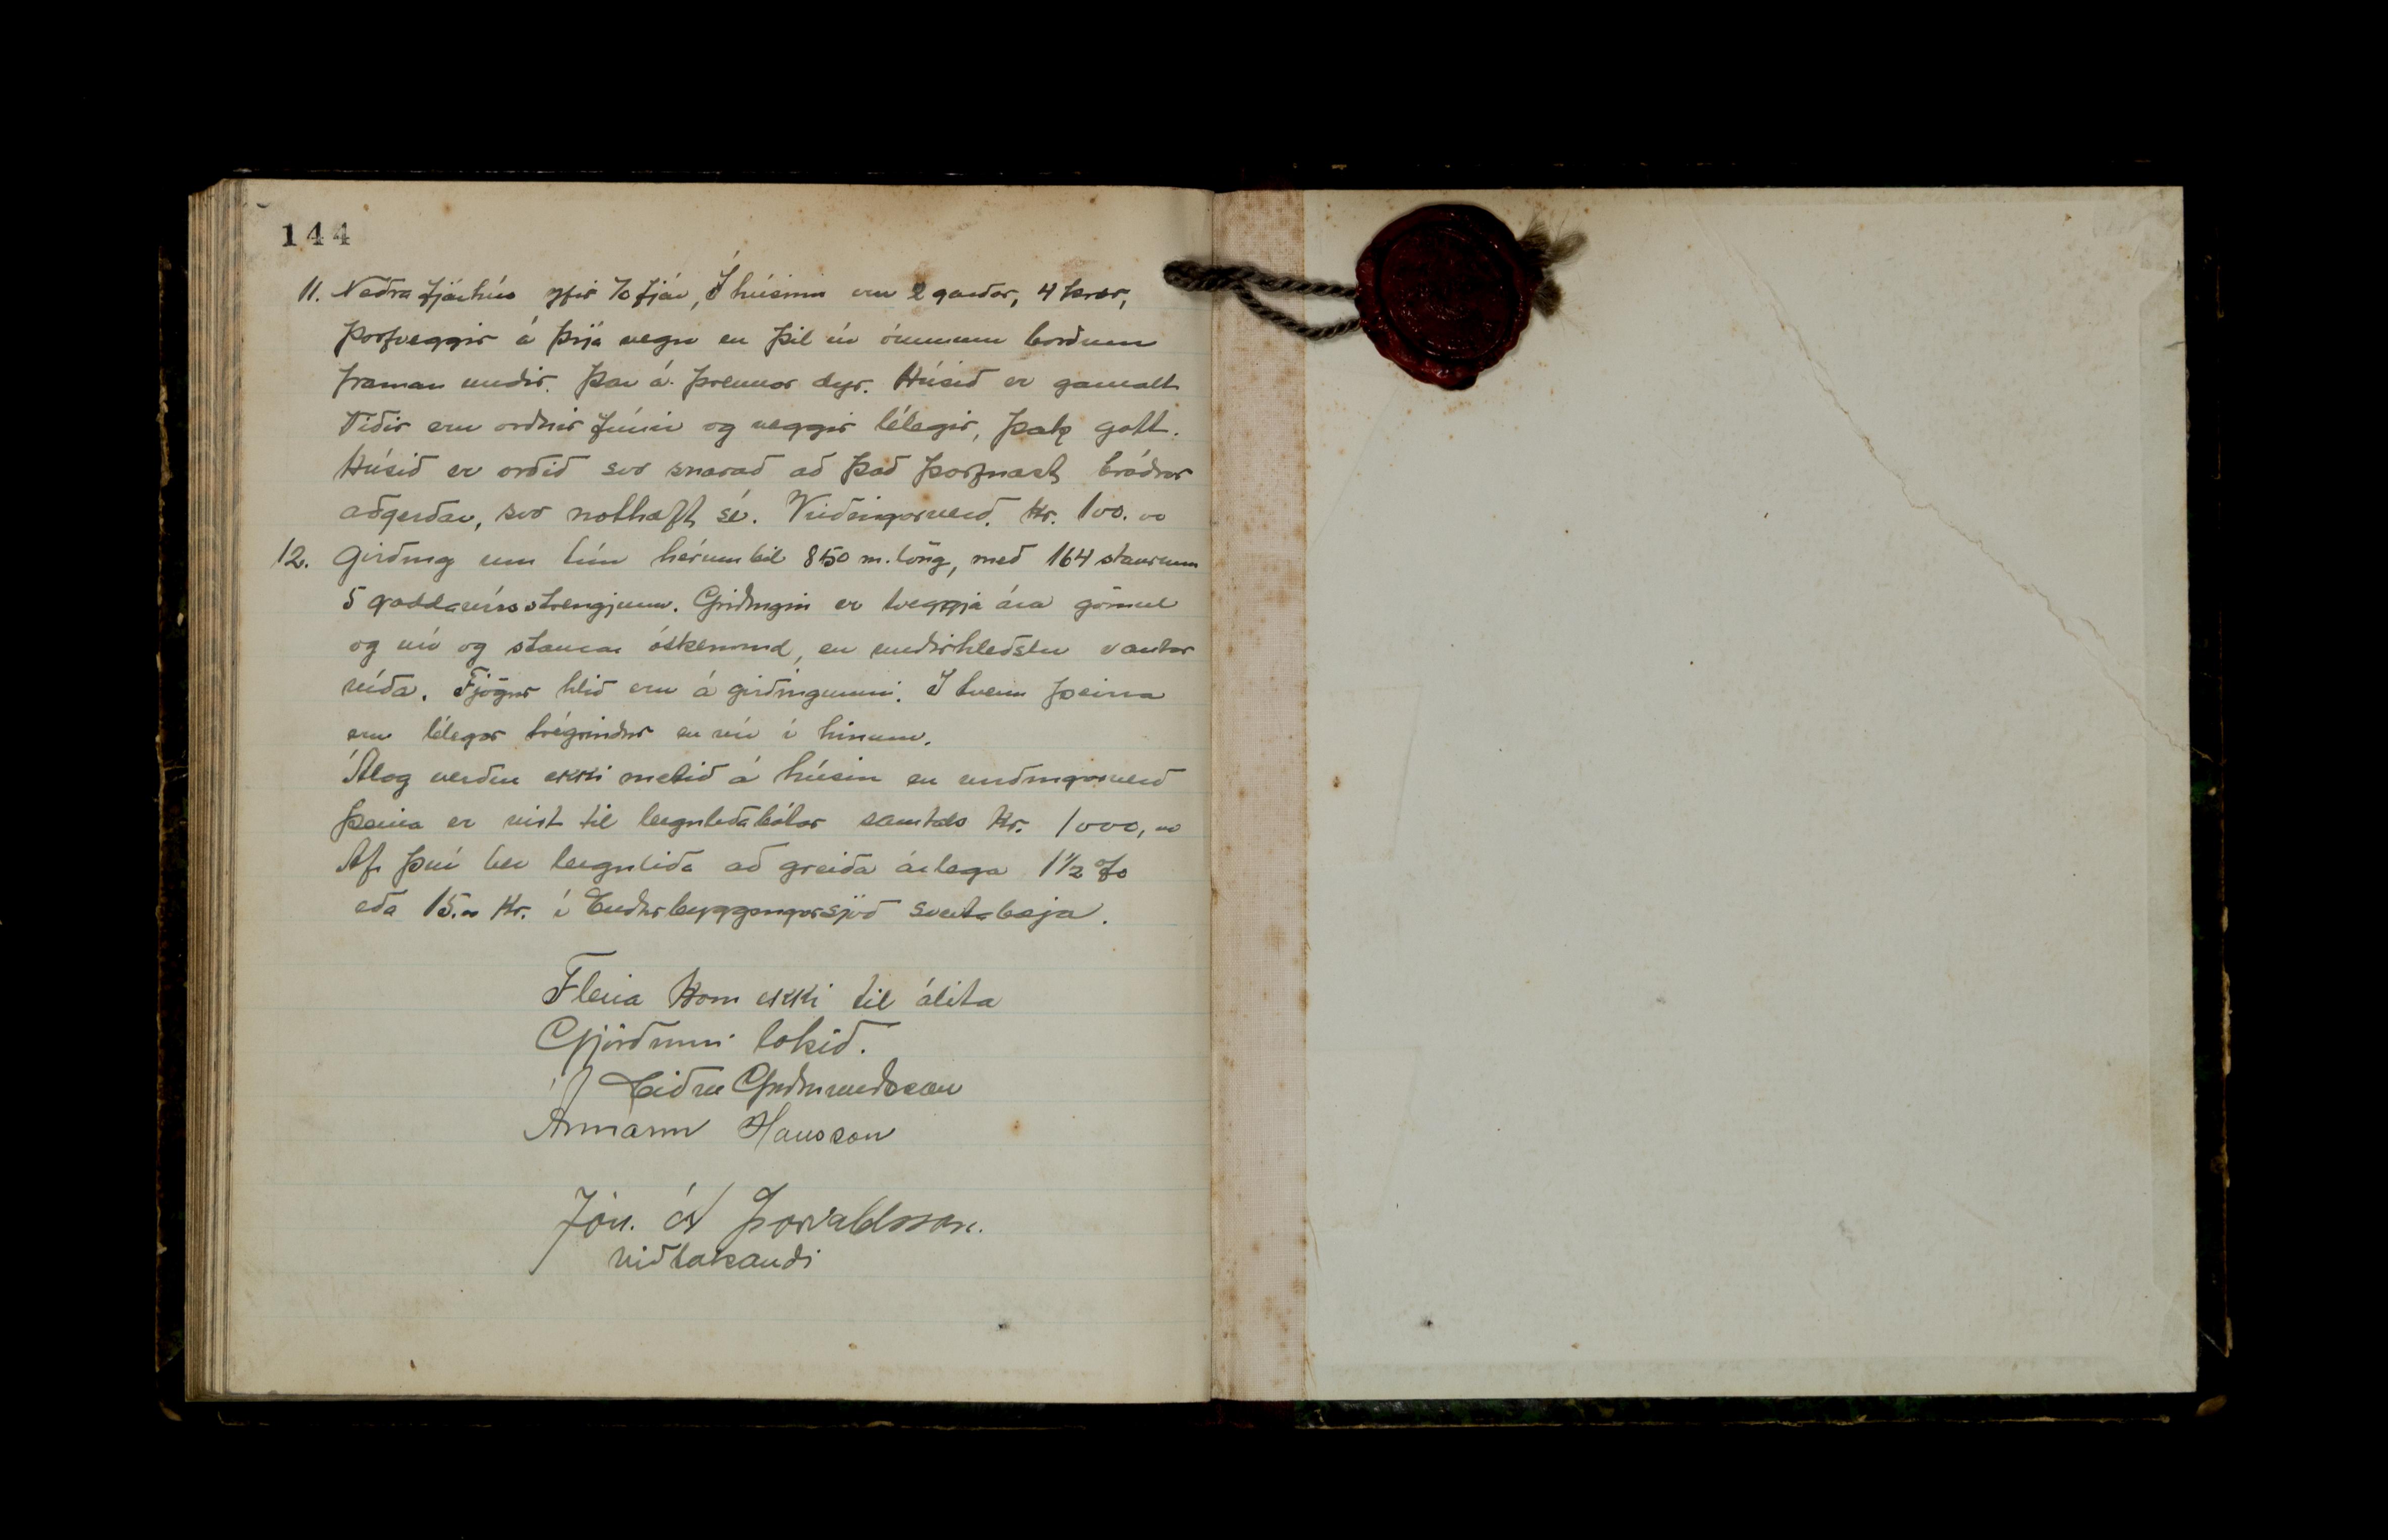 144
11. Neðra fjárhús yfir 70 fjár, Í húsinu eru 2 garðar, 4 krær,
þorfveggir á þrjá vegu en þil úr ónumum borðum
framan undir. Þar á þrennar dyr. Húsið er gamalt
Viðir eru orðnir fúnir og veggir lélegir, þak gott.
Húsið er orðið svo snarað að það þarfnast bráðrar
aðgerðar, svo nothæft sé. Virðingarverð. kr. 100.00
12. Girðing um tún hérumbil 850 m. löng, með 164 staurum
5 gaddavírsstrengjum. Girðingin er tveggja ára gömul
og vír og staurar óskemmd, en undirhleðslu vantar
víða. Fjögur hlið eru á girðingunni. Í tveim þeirra
eru lélegar trégrindur en vír í hinum.
Álag verður ekki metið á húsin en virðingarverð
þeirra er virt til leiguliðabótar samtals kr. 1000,00
Af því ber leiguliða að greiða árlega 1 1/2 %
eða 15.00 kr. í Endurbyggingarsjóð sveitabæja.
Fleira kom ekki til álita
Gjörðinni lokið.
Eiður Guðmundsson
Ármann Hansson
Jón. Þorvaldsson.
viðtakandi